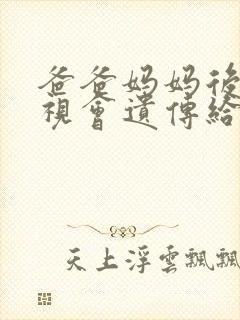 爸爸妈妈後
視會遺傳給
天上浮雲飄飄